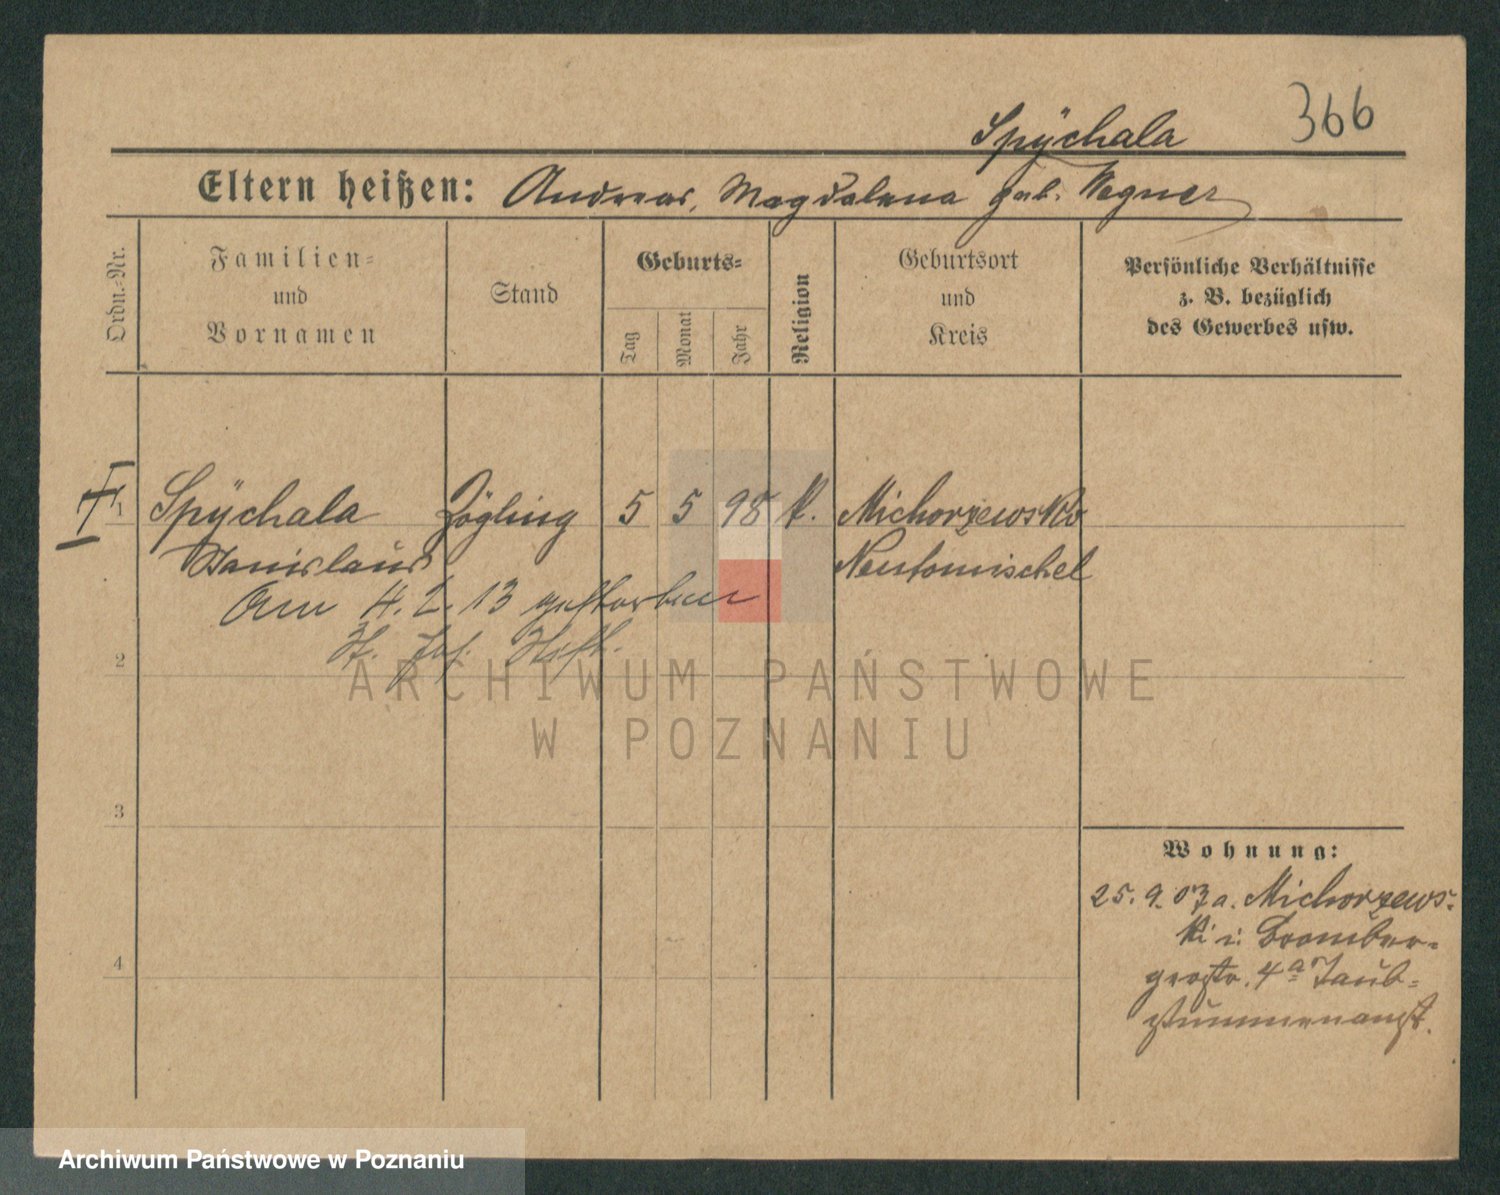 366
Spÿchala
Eltern heißen: Andreas, Magdalena geb. Wegner
Ordn.-Nr.
Familien-
und
Vornamen
Stand
Geburts-
Tag
Monat
Jahr
Religion
Geburtsort
und
Kreis
Persönliche Verhältnisse
z. B. bezüglich
des Gewerbes usw.
1 Spÿchala Zögling 5 5 98 k. Michorzewsko
Stanislaus Neutomischel
Am 4. 2. 13 gestorben
2
3
4
Wohnung:
25. 9. 07 a. Michorzews-
ki i. Bromber-
gerstr. 4a Taub-
stummenanst.
ARCHIWUM PAŃSTWOWE
W POZNANIU
Archiwum Państwowe w Poznaniu